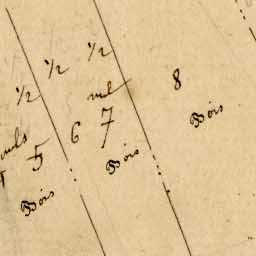 ½ ½ ½
5 6 7 8
Bois Bois Bois